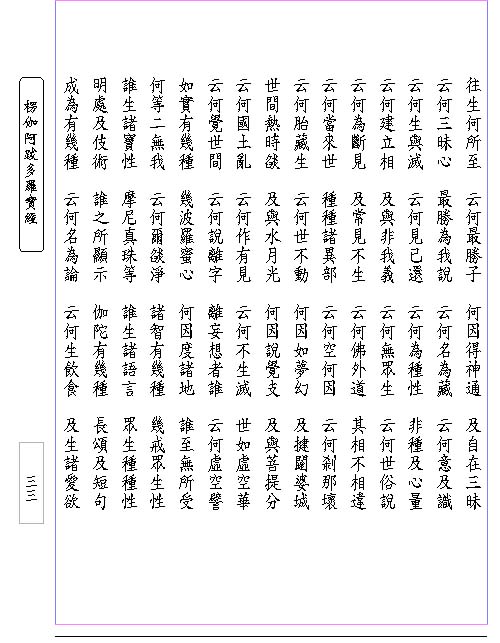 往生何所至　云何最勝子　何因得神通　及自在三昧
云何三昧心　最勝為我說　云何名為藏　云何意及識
云何生與滅　云何見已還　云何為種性　非種及心量
云何建立相　及與非我義　云何無眾生　云何世俗說
云何為斷見　及常見不生　云何佛外道　其相不相違
云何當來世　種種諸異部　云何空何因　云何剎那壞
云何胎藏生　云何世不動　何因如夢幻　及揵闥婆城
世間熱時燄　及與水月光　何因說覺支　及與菩提分
云何國土亂　云何作有見　云何不生滅　世如虛空華
云何覺世間　云何說離字　離妄想者誰　云何虛空譬
如實有幾種　幾波羅蜜心　何因度諸地　誰至無所受
何等二無我　云何爾燄淨　諸智有幾種　幾戒眾生性
誰生諸寶性　摩尼真珠等　誰生諸語言　眾生種種性
明處及伎術　誰之所顯示　伽陀有幾種　長頌及短句
成為有幾種　云何名為論　云何生飲食　及生諸愛欲
楞伽阿跋多羅寶經
三三